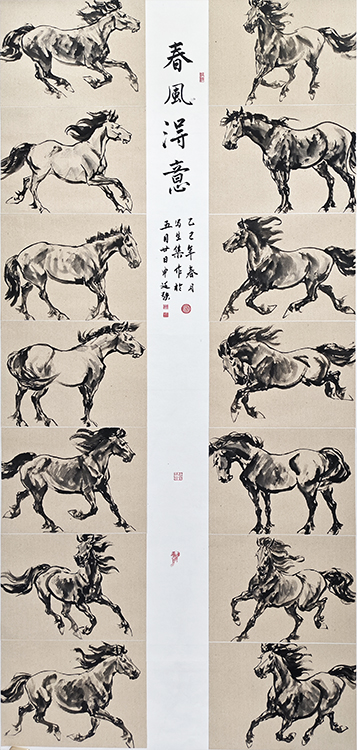 春風淂意
乙巳年春月
写生集作於
五月廿日